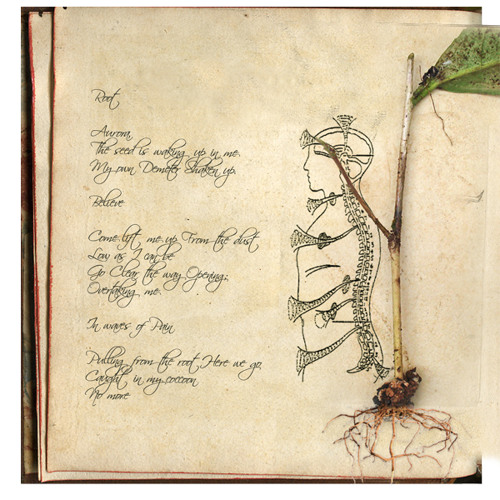 Root
Aurora,
The seed is waking up in me.
My own Demeter Shaken up.
Believe
Come lift me up From the dust
Low as I can be
Go Clear the way Opening;
Overtaking me.
In waves of Pain
Pulling from the root Here we go,
Caught in my coccoon
No more